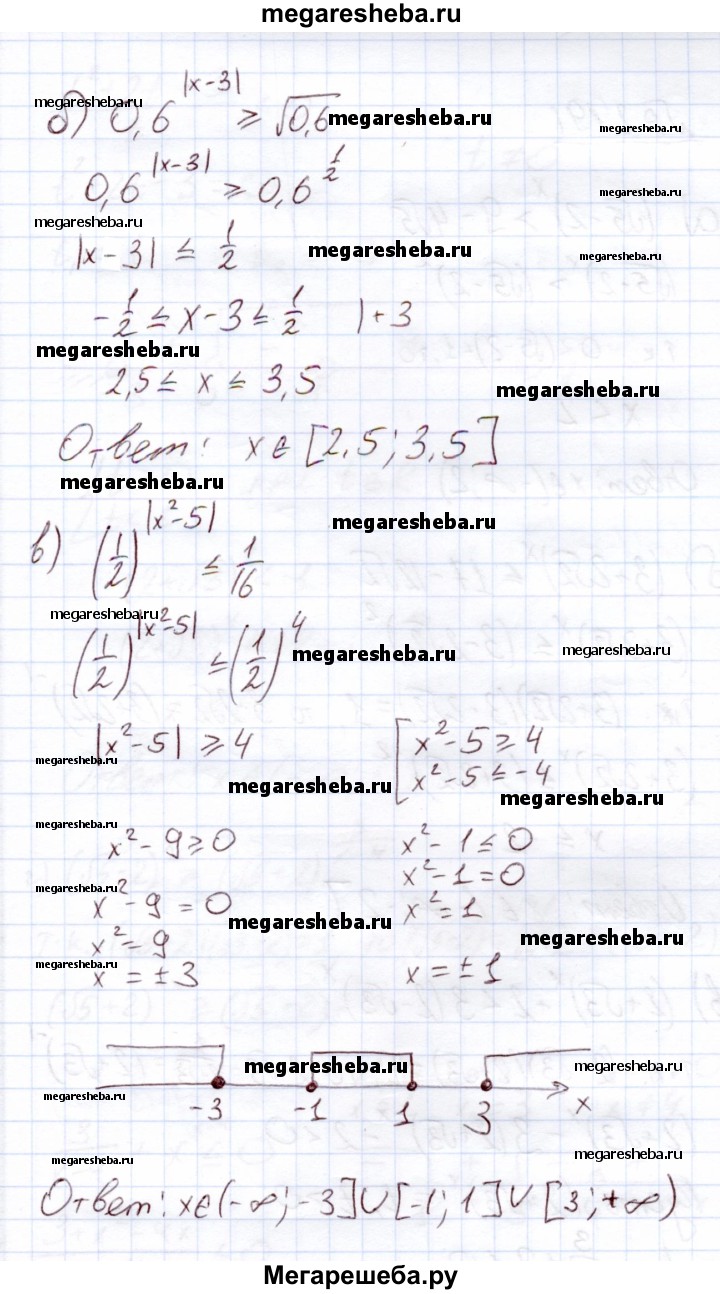 megaresheba.ru
megaresheba.ru
б) 0,6^|x-3| ≥ √0,6 megaresheba.ru
megaresheba.ru
0,6^|x-3| ≥ 0,6^(1/2)
megaresheba.ru
megaresheba.ru
|x-3| ≤ 1/2 megaresheba.ru
megaresheba.ru
-1/2 ≤ x-3 ≤ 1/2 |+3
megaresheba.ru
2,5 ≤ x ≤ 3,5 megaresheba.ru
Ответ: x ∈ [2,5; 3,5]
megaresheba.ru
в) (1/2)^|x²-5| ≤ 1/16
megaresheba.ru
megaresheba.ru
(1/2)^|x²-5| ≤ (1/2)^4 megaresheba.ru
megaresheba.ru
|x²-5| ≥ 4 [ x²-5 ≥ 4
x²-5 ≤ -4
megaresheba.ru
megaresheba.ru megaresheba.ru
megaresheba.ru
x²-9 ≥ 0 x²-1 ≤ 0
megaresheba.ru x²-1=0
x²-9=0 megaresheba.ru x²=1
x²=9 megaresheba.ru
megaresheba.ru
x=±3 x=±1
megaresheba.ru megaresheba.ru
megaresheba.ru
-3 -1 1 3 x
megaresheba.ru megaresheba.ru
Ответ: x∈(-∞; -3]∪[-1; 1]∪[3; +∞)
Мегарешеба.ру